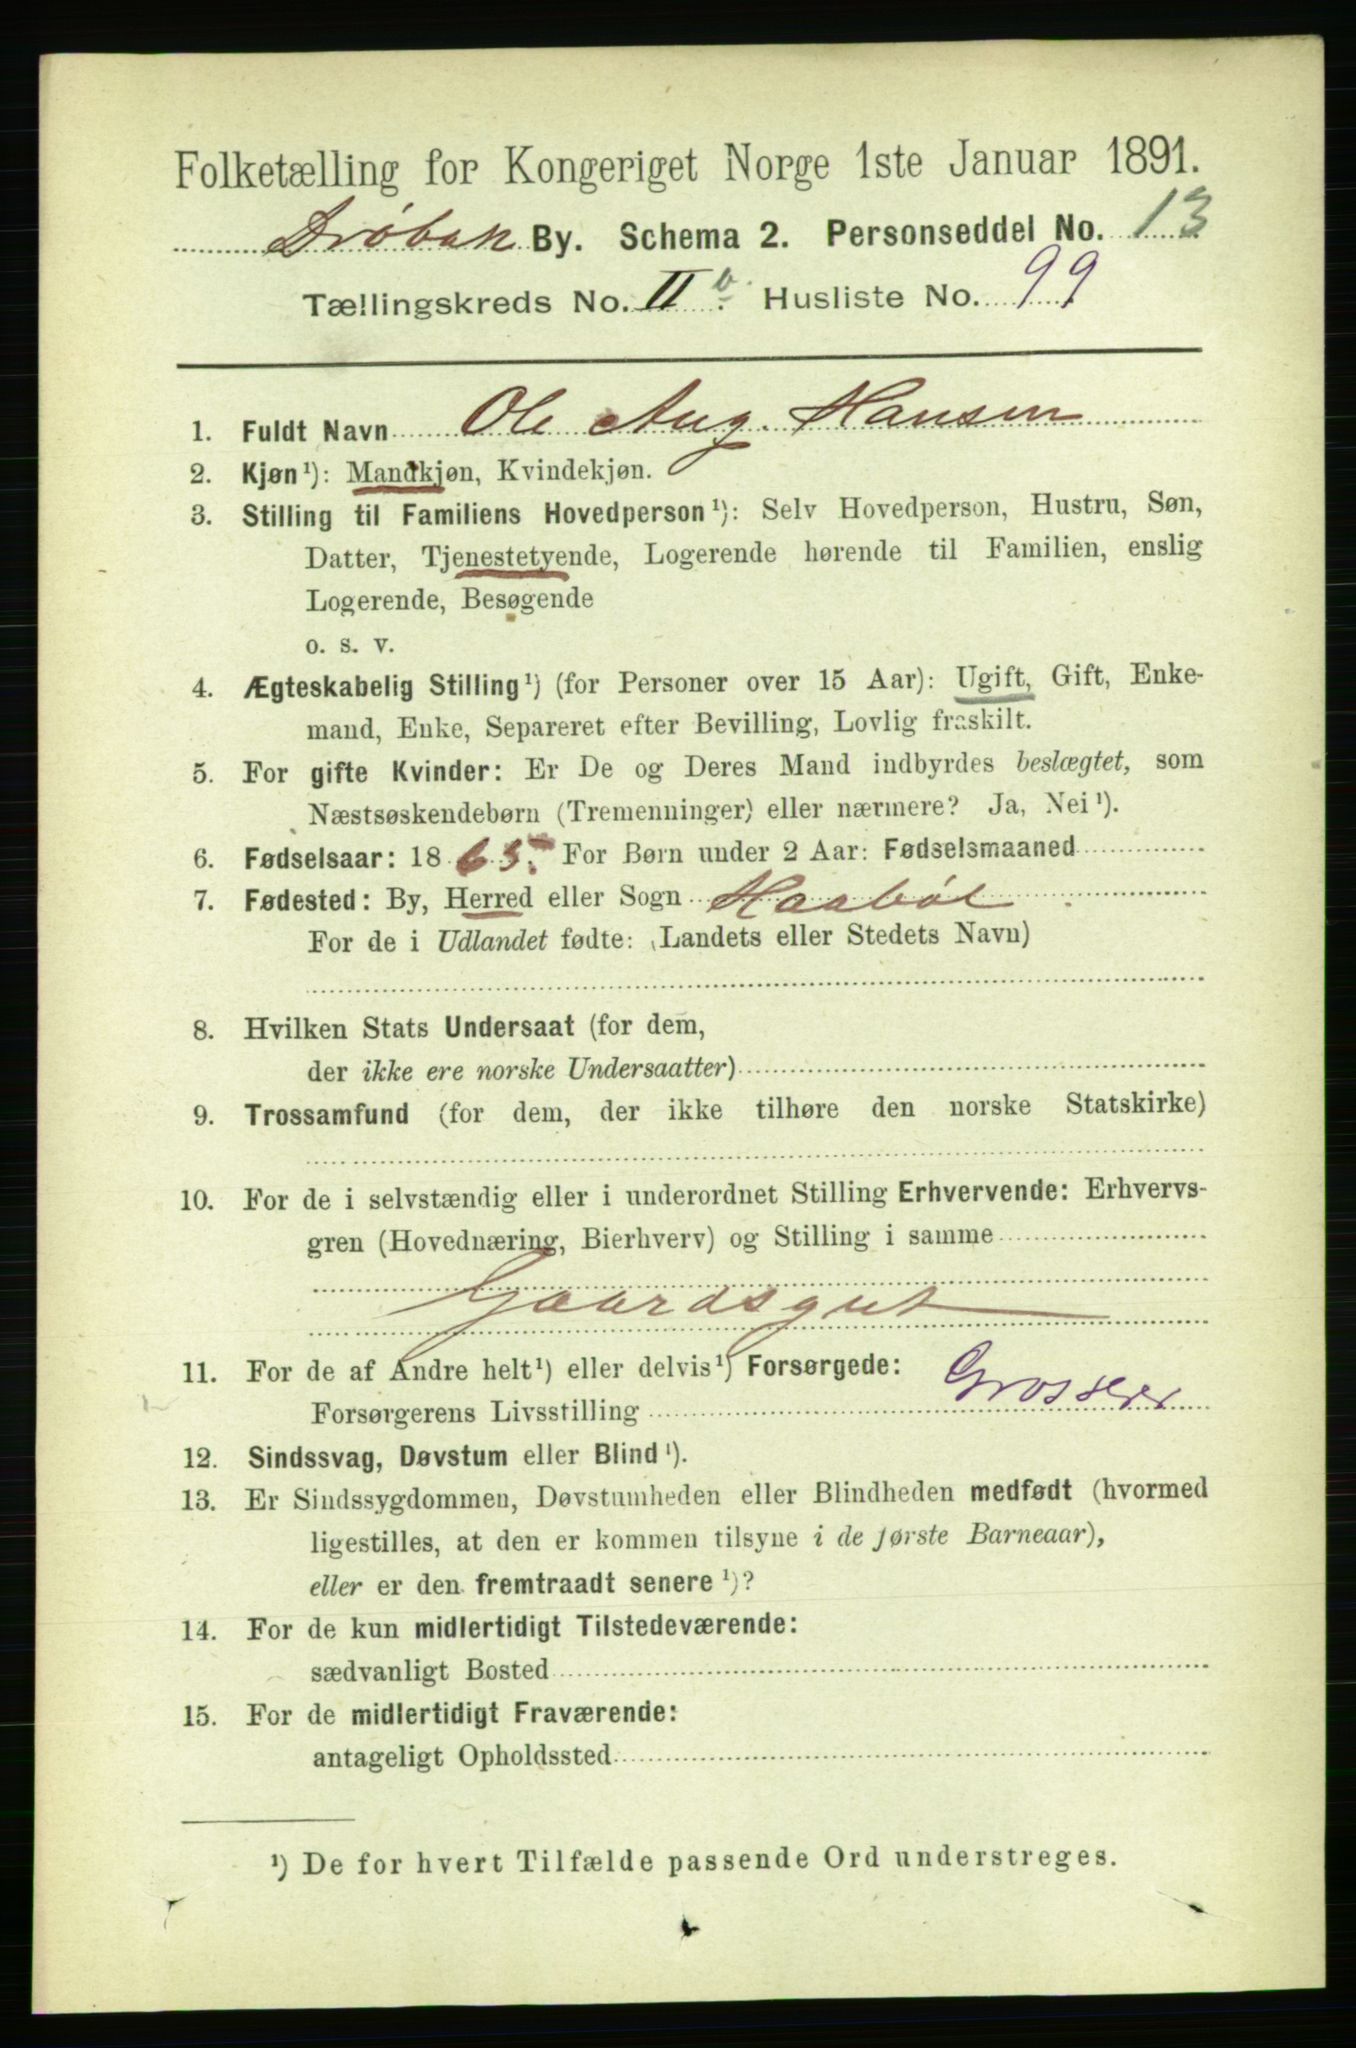 Folketælling for Kongeriget Norge 1ste Januar 1891.
Drøbak By. Schema 2. Personseddel No. 13
Tællingskreds No. II b. Husliste No. 99
1. Fuldt Navn Ole Aug. Hansen
2. Kjøn¹): Mandkjøn, Kvindekjøn.
3. Stilling til Familiens Hovedperson¹): Selv Hovedperson, Hustru, Søn,
Datter, Tjenestetyende, Logerende hørende til Familien, enslig
Logerende, Besøgende
o. s. v.
4. Ægteskabelig Stilling¹) (for Personer over 15 Aar): Ugift, Gift, Enke-
mand, Enke, Separeret efter Bevilling, Lovlig fraskilt.
5. For gifte Kvinder: Er De og Deres Mand indbyrdes beslægtet, som
Næstsøskendebørn (Tremenninger) eller nærmere? Ja, Nei¹).
6. Fødselsaar: 1865. For Børn under 2 Aar: Fødselsmaaned
7. Fødested: By, Herred eller Sogn Haabøl
For de i Udlandet fødte: (Landets eller Stedets Navn)
8. Hvilken Stats Undersaat (for dem,
der ikke ere norske Undersaatter)
9. Trossamfund (for dem, der ikke tilhøre den norske Statskirke)
10. For de i selvstændig eller i underordnet Stilling Erhvervende: Erhvervs-
gren (Hovednæring, Bierhverv) og Stilling i samme
Gaardsgut
11. For de af Andre helt¹) eller delvis¹) Forsørgede:
Forsørgerens Livsstilling Grosserer
12. Sindssvag, Døvstum eller Blind¹).
13. Er Sindssygdommen, Døvstumheden eller Blindheden medfødt (hvormed
ligestilles, at den er kommen tilsyne i de første Barneaar),
eller er den fremtraadt senere¹)?
14. For de kun midlertidigt Tilstedeværende:
sædvanligt Bosted
15. For de midlertidigt Fraværende:
antageligt Opholdssted
¹) De for hvert Tilfælde passende Ord understreges.